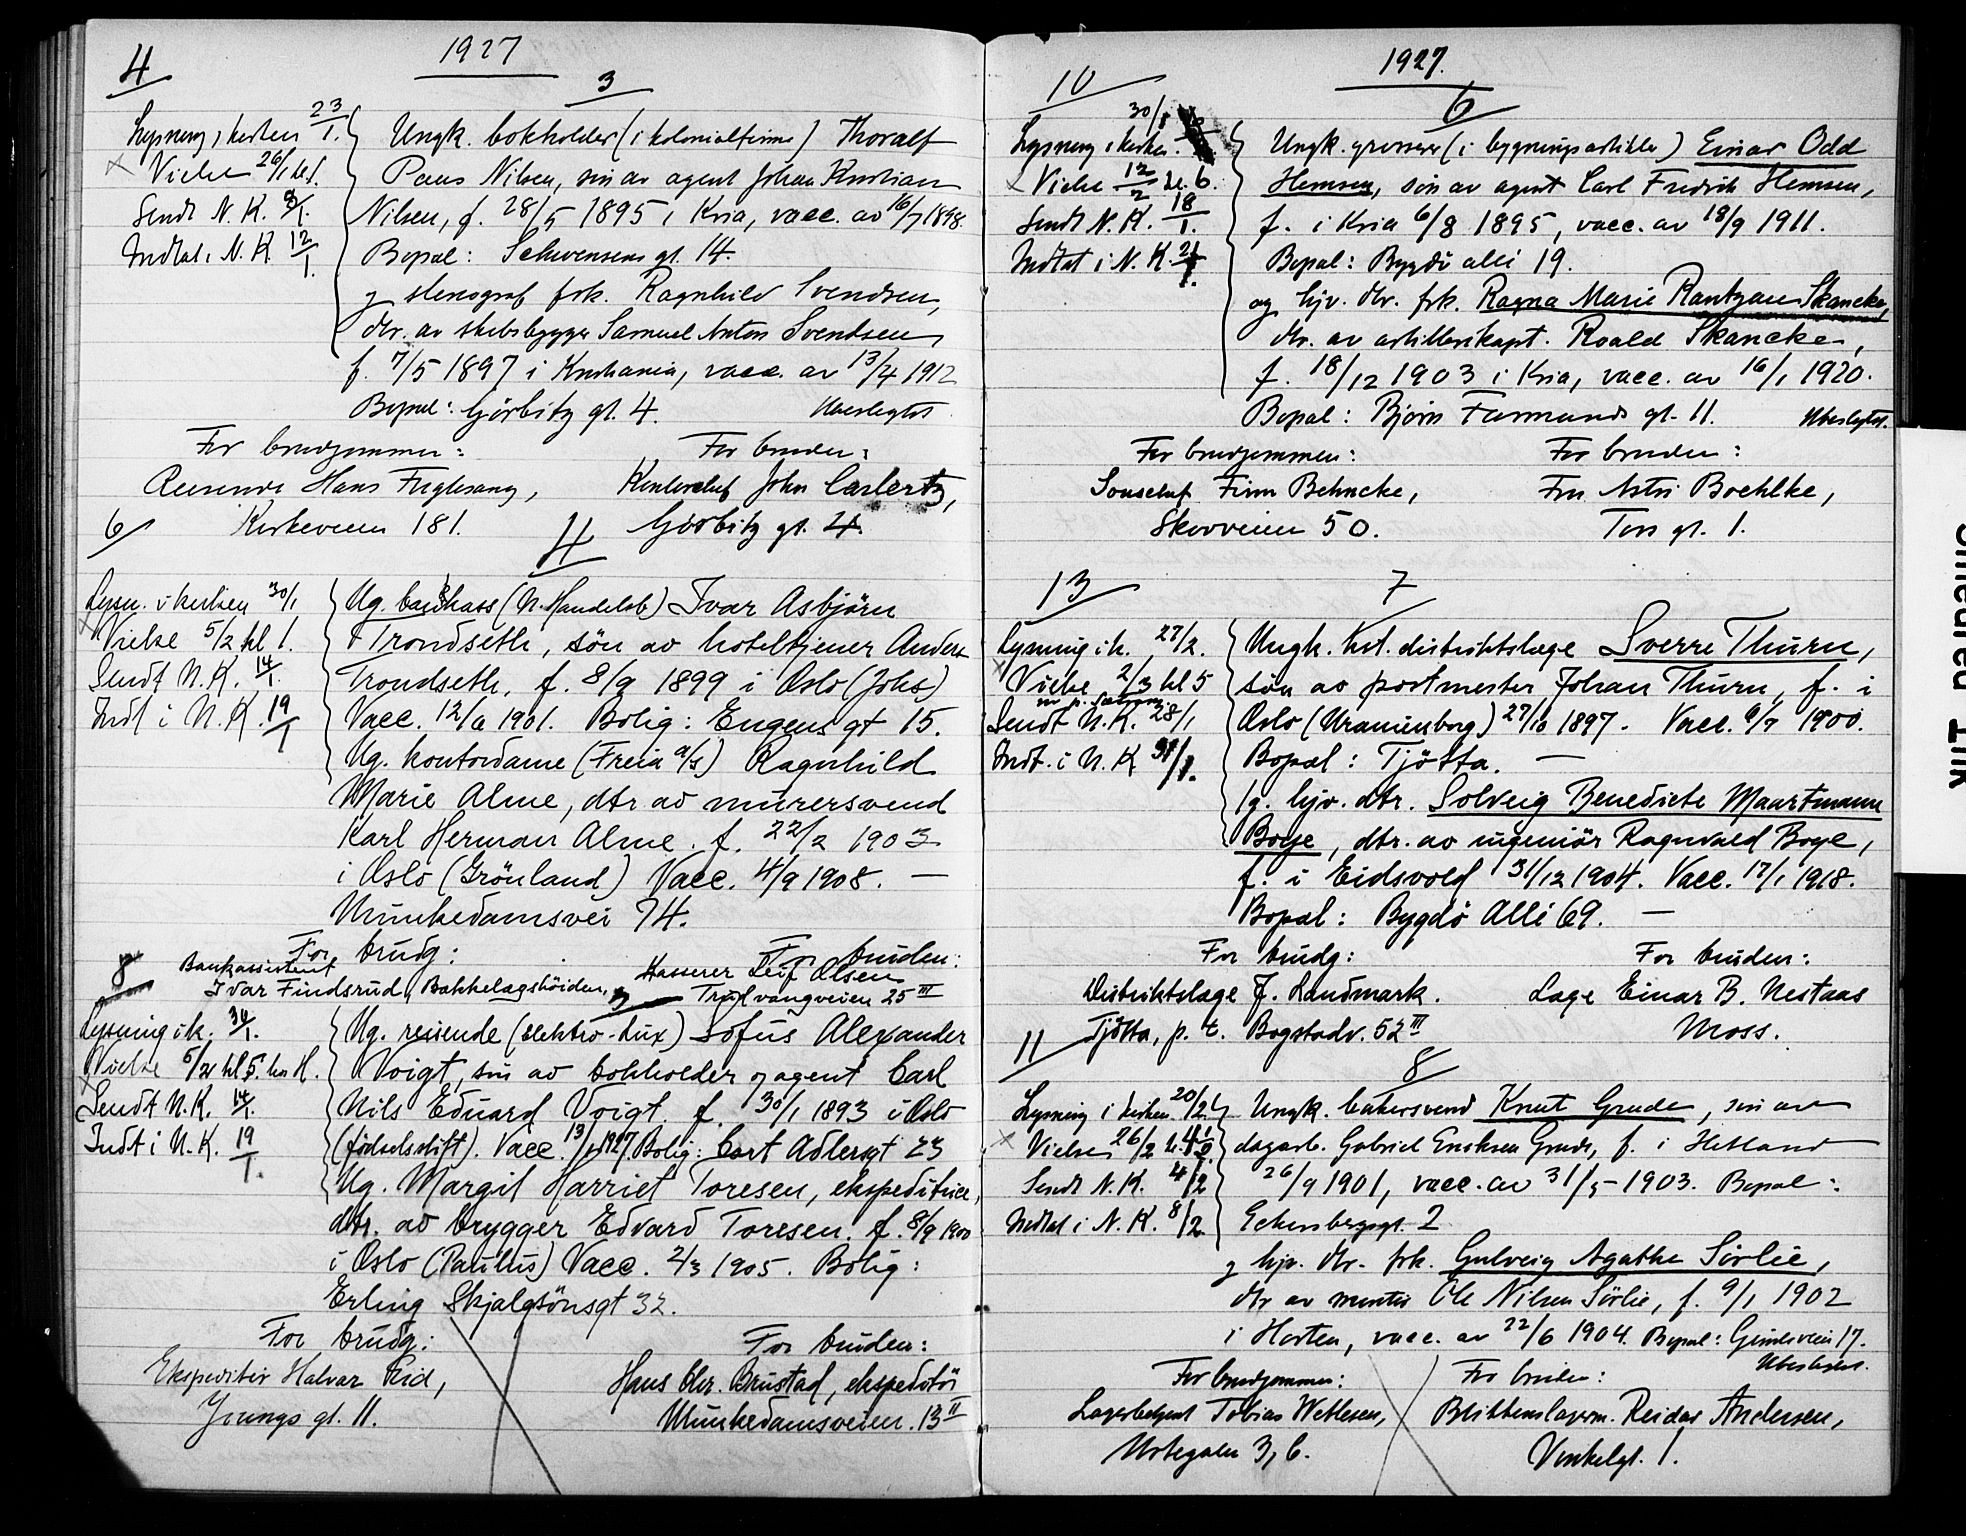 4
1927
3
Lysning i kirken 23/1.
Vielse 26/1 kl.
Sendt N. K. 8/1.
Indtat i N. K 12/1.
Ungk. bokholder (i kolonialfirma) Thoralf
Paus Nilsen, søn av agent Johan Kristian
Nilsen, f. 28/5 1895 i Kria, vacc. av 16/7 1898.
Bopæl: Schwensens gt. 14.
og stenograf frk. Ragnhild Svendsen,
dtr. av skibsbygger Samuel Anton Svendsen
f. 7/5 1897 i Kristiania, vacc. av 13/4 1912
Bopæl: Görbitz gt. 4. Ubeslegtet
For brudgommen: For bruden:
Reisende Hans Fuglesang, Kontorchef John Carlertz,
Kirkeveien 181. Görbitz gt. 4.
6
4
Lysn. i kirken 30/1
Vielse 5/2 kl 1.
Sendt N. K. 14/1.
Indt i N. K. 19/1
Ug. bankkass (N. Handelsb) Ivar Asbjörn
Trondseth, sön av hoteltjener Anders
Trondseth, f. 8/9 1899 i Oslo (Johs)
Vacc. 12/6 1901. Bolig: Eugens gt 15.
Ug. kontordame (Freia a/s) Ragnhild
Marie Alme, dtr av murersvend
Karl Herman Alme. f. 22/2 1903
i Oslo (Grönland) Vacc. 4/9 1908. —
Munkedamsvei 74.
For brudg: For bruden:
Bankassistent Kasserer Leif Olsen
Ivar Findsrud, Bakkelagshöiden, Trudvangveien 25 III
8
5
Lysning i k. 30/1.
Vielse 5/2 kl 5. hos H.
Sendt N. K. 14/1.
Indt i N. K. 19/1.
Ug. reisende (elektro-lux) Sofus Alexander
Voigt, søn av bokholder og agent Carl
Nils Eduard Voigt f. 30/1 1893 i Oslo
(fødselsstift). Vacc. 13/ 1907 Bolig: Cort Adlersgt 23
Ug. Margit Harriet Toresen, ekspeditrice,
dtr. av brygger Edvard Toresen. f. 8/9 1900
i Oslo (Paulus) Vacc. 2/3 1905. Bolig:
Erling Skjalgsönsgt 32.
For brudg: For bruden:
Ekspeditör Halvar Eid, Hans Chr. Brustad, ekspeditör
Youngs gt. 11. Munkedamsveien. 13 II
1927.
10
6
Lysning i kirken. 30/1
Vielse 12/2 kl. 6.
Sendt N. K. 18/1.
Indtat i N. K. 21/1.
Ungk. grosserer (i bygningsartikler) Einar Odd
Hemsen, søn av agent Carl Fredrik Hemsen,
f. i Kria 6/8 1895, vacc. av 18/9 1911.
Bopæl: Bygdö alle 19.
og hjv. dtr. frk. Ragna Marie Rantzau Skancke,
dtr. av artillerikapt. Roald Skancke,
f. 18/12 1903 i Kria, vacc. av 16/1 1920.
Bopæl: Bjørn Farmands gt. 11. Ubeslegtet.
For brudgommen: For bruden:
Finn Behncke, Fru Astri Boehlke,
Skovveien 50. Tors gt. 1.
13
7
Lysning i k. 27/2.
Vielse 2/3 kl 5
Sendt N. K. 28/1
Indt. i N. K 31/1.
Ungk. kst. distriktslæge Sverre Thürn,
sön av postmester Johan Thürn, f. i
Oslo (Uranienborg) 27/10 1897. Vacc. 6/7 1900.
Bopæl: Tjötta. —
Ug. hjv. dtr. Solveig Benedicte Maartmann
Boye, dtr. av ingeniör Ragnvald Boye,
f. i Eidsvold 31/12 1904. Vacc. 17/1 1918.
Bopæl: Bygdö Allé 69. —
For brudg: For bruden:
Distriktslæge J. Landmark. Læge Einar B. Nestaas
Tjötta, p. t. Bogstadv. 52 III Moss.
11
8
Lysning i kirken 20/2
Vielse 26/2 kl. 4 1/2.
Sendt N. K. 4/2
Indtat i N. K. 8/2.
Ungk. bakersvend Knut Grude, søn av
dagarb. Gabriel Eriksen Grude, f. i Hetland
26/9 1901, vacc. av 31/5 1903. Bopæl:
Eckersbergsgt. 2
og hjv. dtr. frk. Gulveig Agathe Sørlie,
dtr av Ole Nilsen Sørlie, f. 9/1 1902
i Horten, vacc. av 22/6 1904. Bopæl: Gimleveien 17.
Ubeslegtet.
For brudgommen: For bruden:
Lagerbetjent Tobias Wetlesen, Blikkenslagerm. Reidar Andersen,
Urtegaten 3, 6. Vinkelgt. 1.